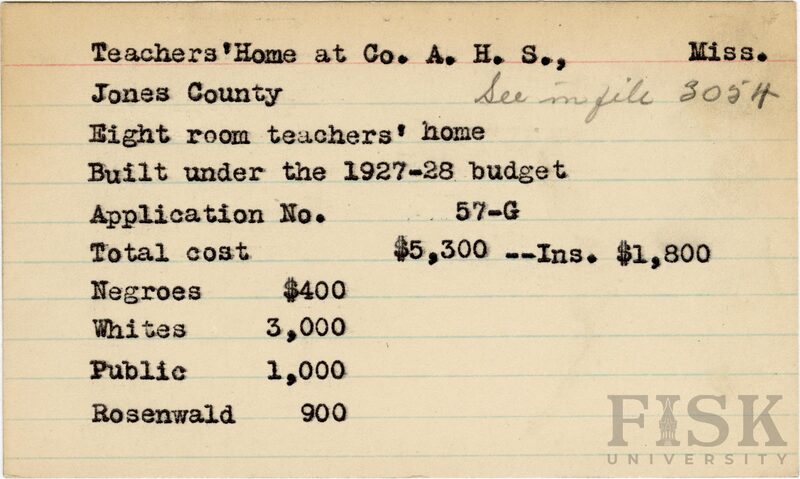 Teachers' Home at Co. A. H. S., Miss.
Jones County See in file 3054
Eight room teachers' home
Built under the 1927-28 budget
Application No. 57-G
Total cost $5,300 --Ins. $1,800
Negroes $400
Whites 3,000
Public 1,000
Rosenwald 900
FISK
UNIVERSITY